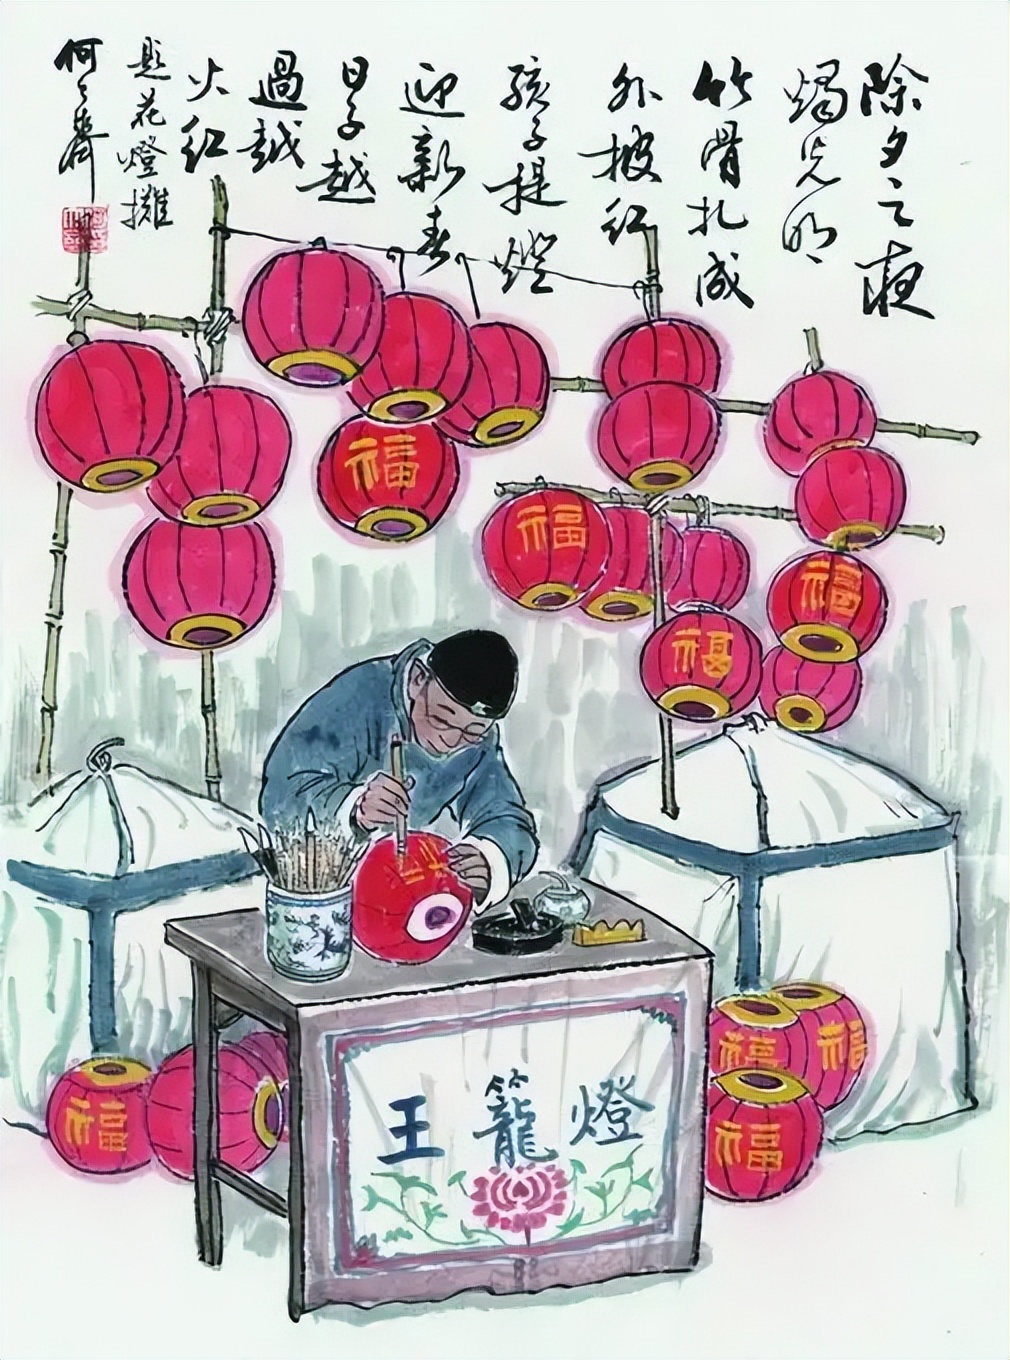 除夕之夜
燭光明
竹骨扎成
外披红
孩子提燈
迎新春
日子越
過越
火红
题花燈攤
何
福
福
福
福
福
福
福
福
燈籠王